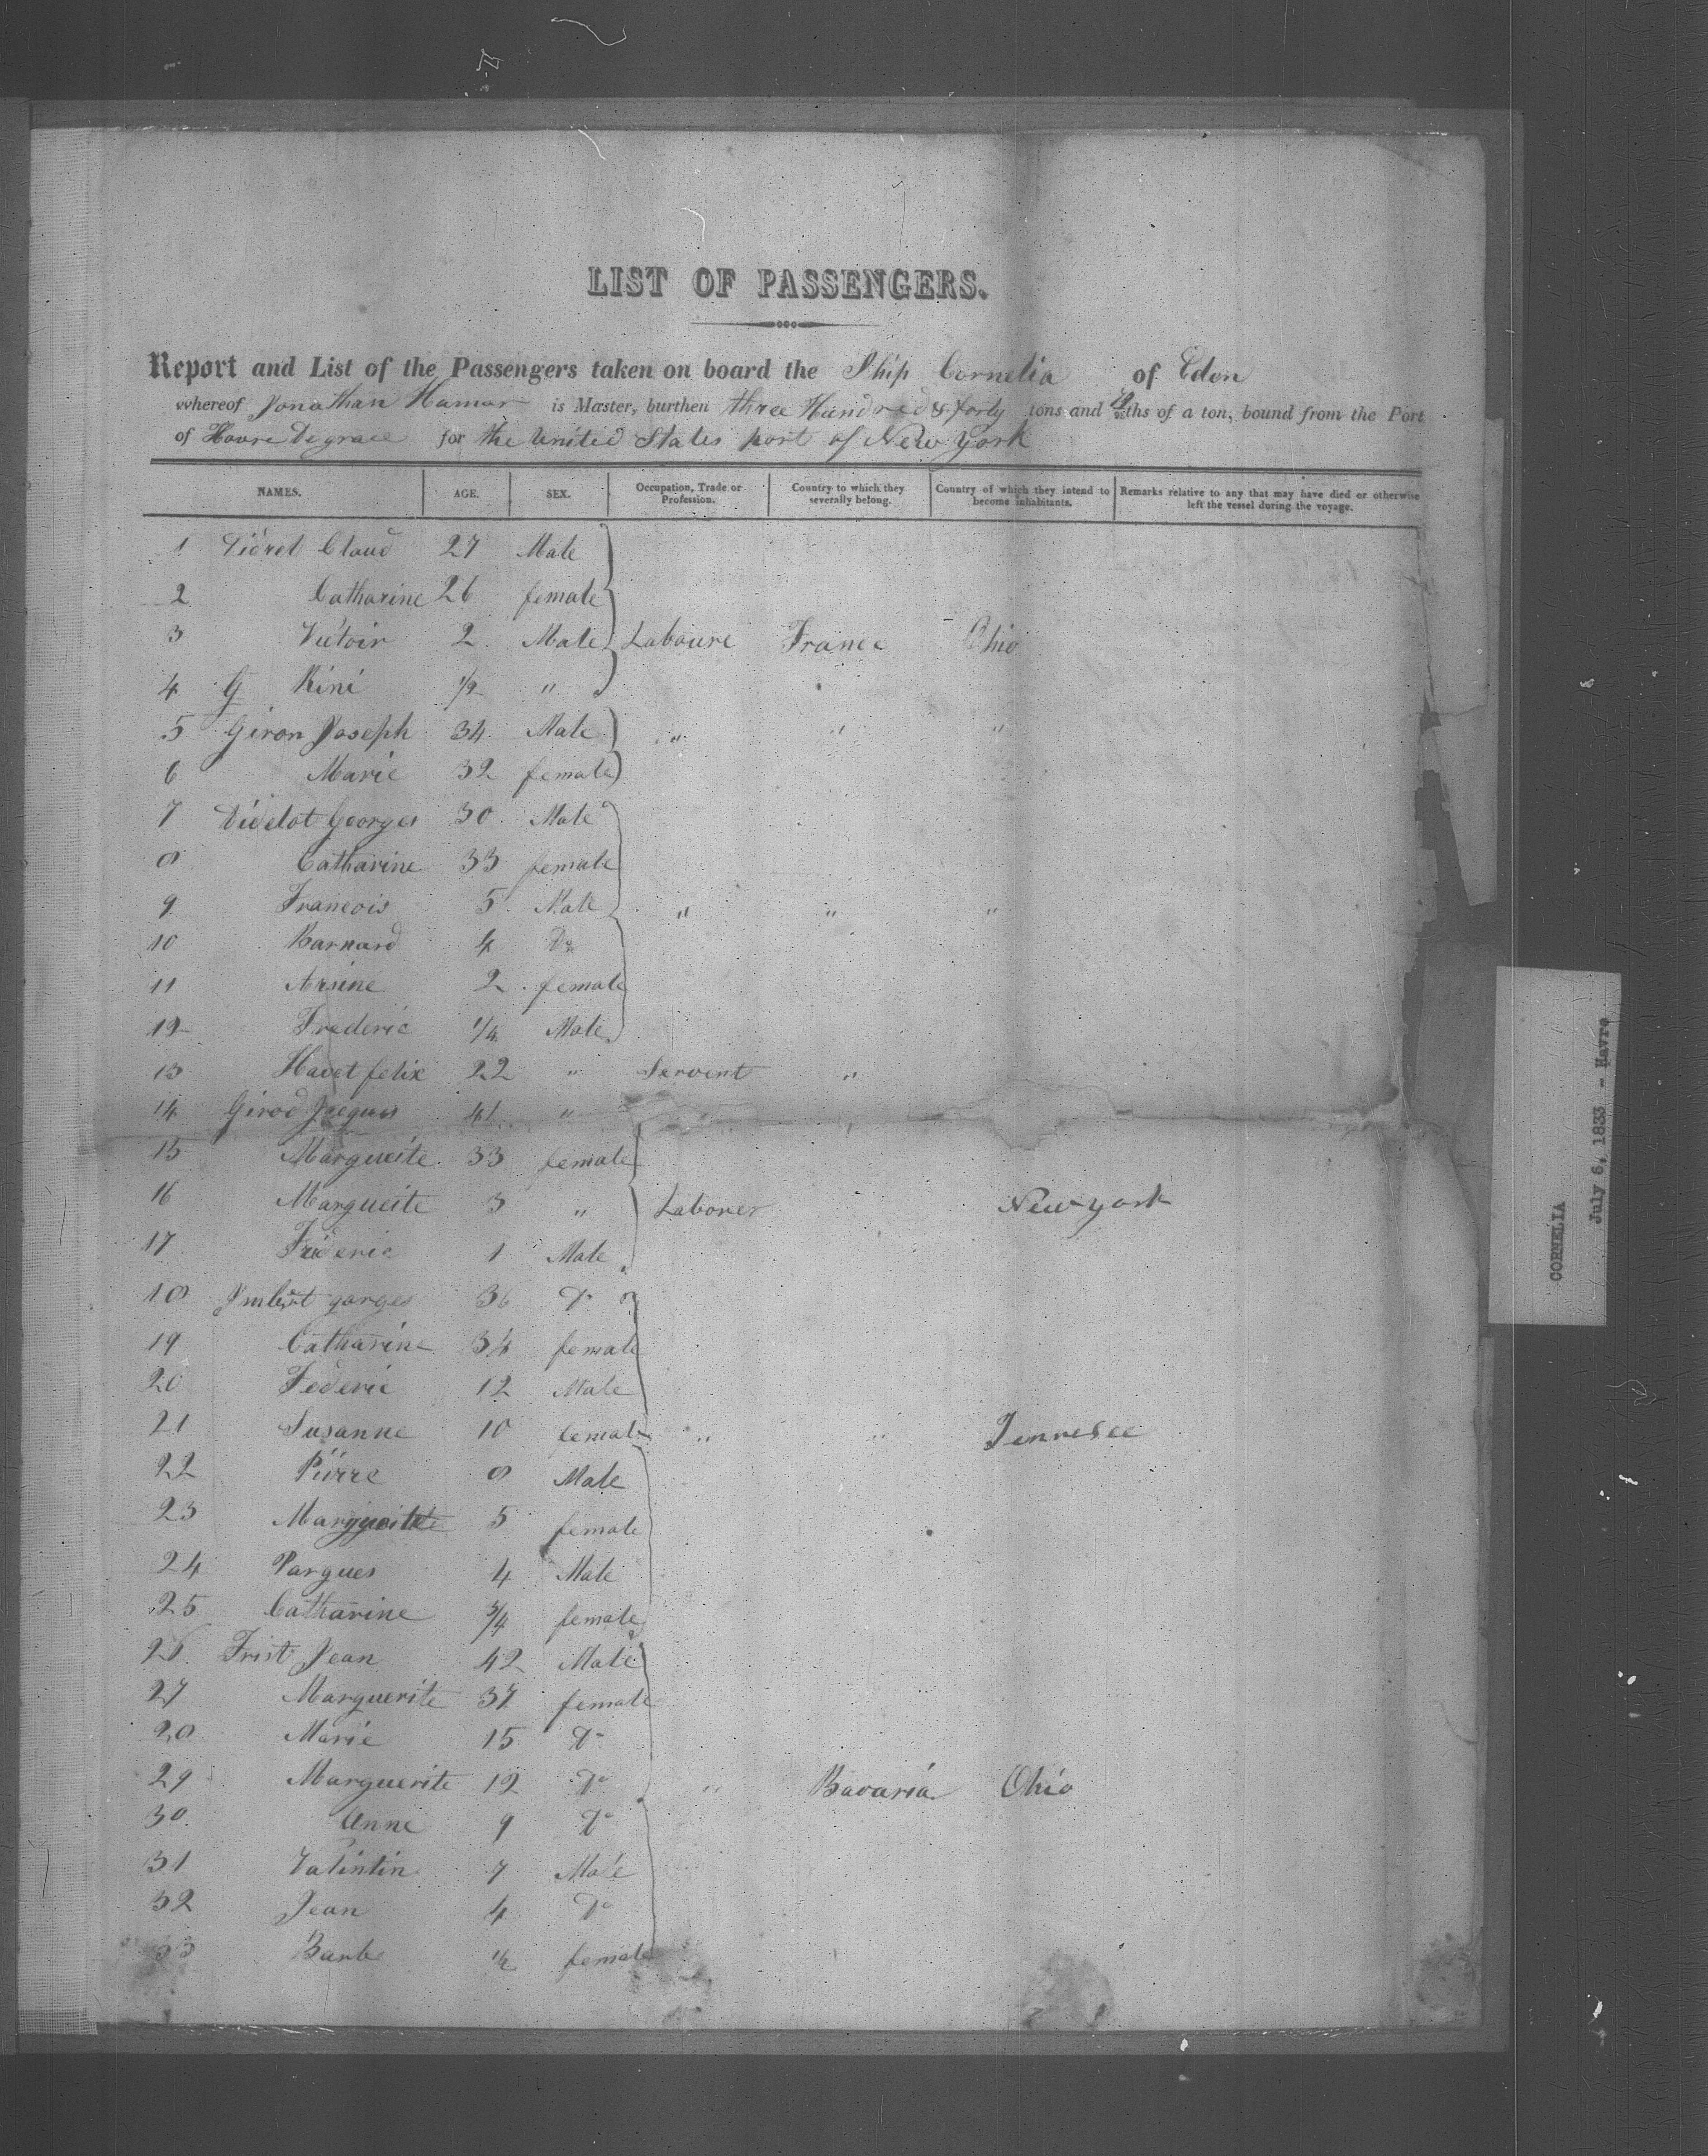 LIST OF PASSENGERS.
Report and List of the Passengers taken on board the Ship Cornelia of Eden
whereof Jonathan Hamar is Master, burthen three Hundred & forty tons and ths of a ton, bound from the Port
of Havre Degrace for the United States port of New York
NAMES. AGE. SEX. Occupation, Trade or Profession. Country to which they severally belong. Country of which they intend to become inhabitants. Remarks relative to any that may have died or otherwise left the vessel during the voyage.
1 Claud 27 Male
2 Catharine 26 female
3 Victoir 2 Male Laboure France Ohio
4 G Rini 1/2 "
5 Giron Joseph 34 Male " " "
6 Marie 32 female
7 Didelot Georges 30 Male
8 Catharine 33 female
9 Francois 5 Male " " "
10 Barnard 4 Do
11 Arsine 2 female
12 Frederic 1/4 Male
13 Havet felix 22 " Servent "
14 Girod Jacques 41 "
15 Margueite 33 female
16 Margueite 3 " Laborer New york
17 Frederic 1 Male
18 Imbert gorges 36 Do
19 Catharine 34 female
20 Federic 12 Male
21 Susanne 10 female " " Tennesee
22 Pierre 8 Male
23 Margueite 5 female
24 4 Male
25 Catharine 3/4 female
26 Frist Jean 42 Male
27 Marguerite 37 female
28 Marie 15 Do
29 Marguerite 12 Do " Bavaria Ohio
30 Anne 9 Do
31 Valintin 7 Male
32 Jean 4 Do
33 Barbe 1/2 female
CORNELIA
July 6, 1833 - Havre